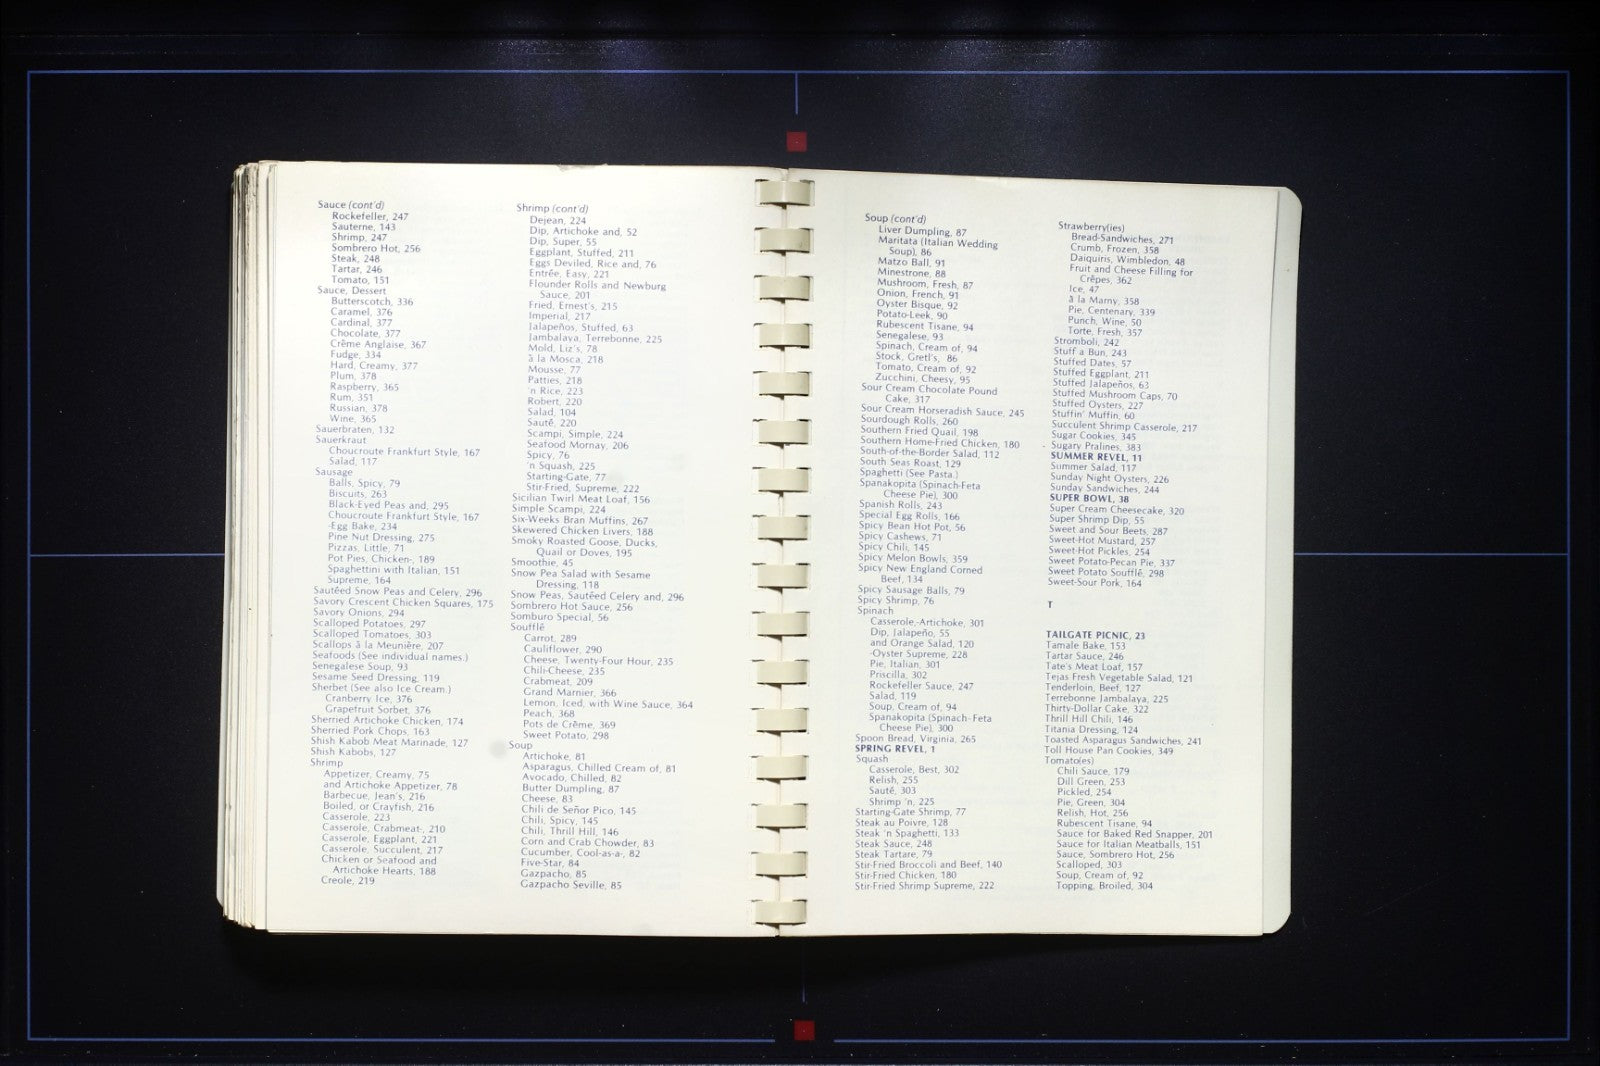 Sauce (cont'd)
Rockefeller, 247
Sauterne, 143
Shrimp, 247
Sombrero Hot, 256
Steak, 248
Tartar, 246
Tomato, 151
Sauce, Dessert
Butterscotch, 336
Caramel, 376
Cardinal, 377
Chocolate, 377
Crême Anglaise, 367
Fudge, 334
Hard, Creamy, 377
Plum, 378
Raspberry, 365
Rum, 351
Russian, 378
Wine, 365
Sauerbraten, 132
Sauerkraut
Choucroute Frankfurt Style, 167
Salad, 117
Sausage
Balls, Spicy, 79
Biscuits, 263
Black-Eyed Peas and, 295
Choucroute Frankfurt Style, 167
-Egg Bake, 234
Pine Nut Dressing, 275
Pizzas, Little, 71
Pot Pies, Chicken-, 189
Spaghettini with Italian, 151
Supreme, 164
Sautéed Snow Peas and Celery, 296
Savory Crescent Chicken Squares, 175
Savory Onions, 294
Scalloped Potatoes, 297
Scalloped Tomatoes, 303
Scallops à la Meunière, 207
Seafoods (See individual names.)
Senegalese Soup, 93
Sesame Seed Dressing, 119
Sherbet (See also Ice Cream.)
Cranberry Ice, 376
Grapefruit Sorbet, 376
Sherried Artichoke Chicken, 174
Sherried Pork Chops, 163
Shish Kabob Meat Marinade, 127
Shish Kabobs, 127
Shrimp
Appetizer, Creamy, 75
and Artichoke Appetizer, 78
Barbecue, Jean's, 216
Boiled, or Crayfish, 216
Casserole, 223
Casserole, Crabmeat-, 210
Casserole, Eggplant, 221
Casserole, Succulent, 217
Chicken or Seafood and
Artichoke Hearts, 188
Creole, 219
Shrimp (cont'd)
Dejean, 224
Dip, Artichoke and, 52
Dip, Super, 55
Eggplant, Stuffed, 211
Eggs Deviled, Rice and, 76
Entrée, Easy, 221
Flounder Rolls and Newburg
Sauce, 201
Fried, Ernest's, 215
Imperial, 217
Jalapeños, Stuffed, 63
Jambalaya, Terrebonne, 225
Mold, Liz's, 78
à la Mosca, 218
Mousse, 77
Patties, 218
'n Rice, 223
Robert, 220
Salad, 104
Sauté, 220
Scampi, Simple, 224
Seafood Mornay, 206
Spicy, 76
'n Squash, 225
Starting-Gate, 77
Stir-Fried, Supreme, 222
Sicilian Twirl Meat Loaf, 156
Simple Scampi, 224
Six-Weeks Bran Muffins, 267
Skewered Chicken Livers, 188
Smoky Roasted Goose, Ducks,
Quail or Doves, 195
Smoothie, 45
Snow Pea Salad with Sesame
Dressing, 118
Snow Peas, Sautéed Celery and, 296
Sombrero Hot Sauce, 256
Somburo Special, 56
Soufflé
Carrot, 289
Cauliflower, 290
Cheese, Twenty-Four Hour, 235
Chili-Cheese, 235
Crabmeat, 209
Grand Marnier, 366
Lemon, Iced, with Wine Sauce, 364
Peach, 368
Pots de Crême, 369
Sweet Potato, 298
Soup
Artichoke, 81
Asparagus, Chilled Cream of, 81
Avocado, Chilled, 82
Butter Dumpling, 87
Cheese, 83
Chili de Señor Pico, 145
Chili, Spicy, 145
Chili, Thrill Hill, 146
Corn and Crab Chowder, 83
Cucumber, Cool-as-a-, 82
Five-Star, 84
Gazpacho, 85
Gazpacho Seville, 85
Soup (cont'd)
Liver Dumpling, 87
Maritata (Italian Wedding
Soup), 86
Matzo Ball, 91
Minestrone, 88
Mushroom, Fresh, 87
Onion, French, 91
Oyster Bisque, 92
Potato-Leek, 90
Rubescent Tisane, 94
Senegalese, 93
Spinach, Cream of, 94
Stock, Gretl's, 86
Tomato, Cream of, 92
Zucchini, Cheesy, 95
Sour Cream Chocolate Pound
Cake, 317
Sour Cream Horseradish Sauce, 245
Sourdough Rolls, 260
Southern Fried Quail, 198
Southern Home-Fried Chicken, 180
South-of-the-Border Salad, 112
South Seas Roast, 129
Spaghetti (See Pasta.)
Spanakopita (Spinach-Feta
Cheese Pie), 300
Spanish Rolls, 243
Special Egg Rolls, 166
Spicy Bean Hot Pot, 56
Spicy Cashews, 71
Spicy Chili, 145
Spicy Melon Bowls, 359
Spicy New England Corned
Beef, 134
Spicy Sausage Balls, 79
Spicy Shrimp, 76
Spinach
Casserole,-Artichoke, 301
Dip, Jalapeño, 55
and Orange Salad, 120
-Oyster Supreme, 228
Pie, Italian, 301
Priscilla, 302
Rockefeller Sauce, 247
Salad, 119
Soup, Cream of, 94
Spanakopita (Spinach-Feta
Cheese Pie), 300
Spoon Bread, Virginia, 265
SPRING REVEL, 1
Squash
Casserole, Best, 302
Relish, 255
Sauté, 303
Shrimp 'n, 225
Starting-Gate Shrimp, 77
Steak au Poivre, 128
Steak 'n Spaghetti, 133
Steak Sauce, 248
Steak Tartare, 79
Stir-Fried Broccoli and Beef, 140
Stir-Fried Chicken, 180
Stir-Fried Shrimp Supreme, 222
Strawberry(ies)
Bread-Sandwiches, 271
Crumb, Frozen, 358
Daiquiris, Wimbledon, 48
Fruit and Cheese Filling for
Crêpes, 362
Ice, 47
à la Marny, 358
Pie, Centenary, 339
Punch, Wine, 50
Torte, Fresh, 357
Stromboli, 242
Stuff a Bun, 243
Stuffed Dates, 57
Stuffed Eggplant, 211
Stuffed Jalapeños, 63
Stuffed Mushroom Caps, 70
Stuffed Oysters, 227
Stuffin' Muffin, 60
Succulent Shrimp Casserole, 217
Sugar Cookies, 345
Sugary Pralines, 383
SUMMER REVEL, 11
Summer Salad, 117
Sunday Night Oysters, 226
Sunday Sandwiches, 244
SUPER BOWL, 38
Super Cream Cheesecake, 320
Super Shrimp Dip, 55
Sweet and Sour Beets, 287
Sweet-Hot Mustard, 257
Sweet-Hot Pickles, 254
Sweet Potato-Pecan Pie, 337
Sweet Potato Soufflé, 298
Sweet-Sour Pork, 164
T
TAILGATE PICNIC, 23
Tamale Bake, 153
Tartar Sauce, 246
Tate's Meat Loaf, 157
Tejas Fresh Vegetable Salad, 121
Tenderloin, Beef, 127
Terrebonne Jambalaya, 225
Thirty-Dollar Cake, 322
Thrill Hill Chili, 146
Titania Dressing, 124
Toasted Asparagus Sandwiches, 241
Toll House Pan Cookies, 349
Tomato(es)
Chili Sauce, 179
Dill Green, 253
Pickled, 254
Pie, Green, 304
Relish, Hot, 256
Rubescent Tisane, 94
Sauce for Baked Red Snapper, 201
Sauce for Italian Meatballs, 151
Sauce, Sombrero Hot, 256
Scalloped, 303
Soup, Cream of, 92
Topping, Broiled, 304